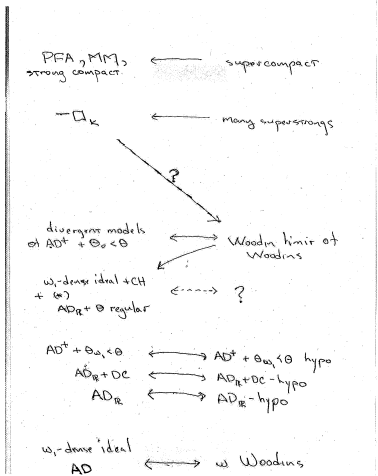 PFA, MM, ← supercompact
strong compact
¬□κ ← many superstrongs
?
divergent models
of AD⁺ + Θ₀ < Θ ↔ Woodin limit of
Woodins
ω₁-dense ideal + CH
+ (*) ↔ ?
AD_ℝ + Θ regular
AD⁺ + Θ_ω₁ < Θ ↔ AD⁺ + Θ_ω₁ < Θ hypo
AD_ℝ + DC ↔ AD_ℝ + DC - hypo
AD_ℝ ↔ AD_ℝ - hypo
ω₁-dense ideal
AD ↔ ω Woodins